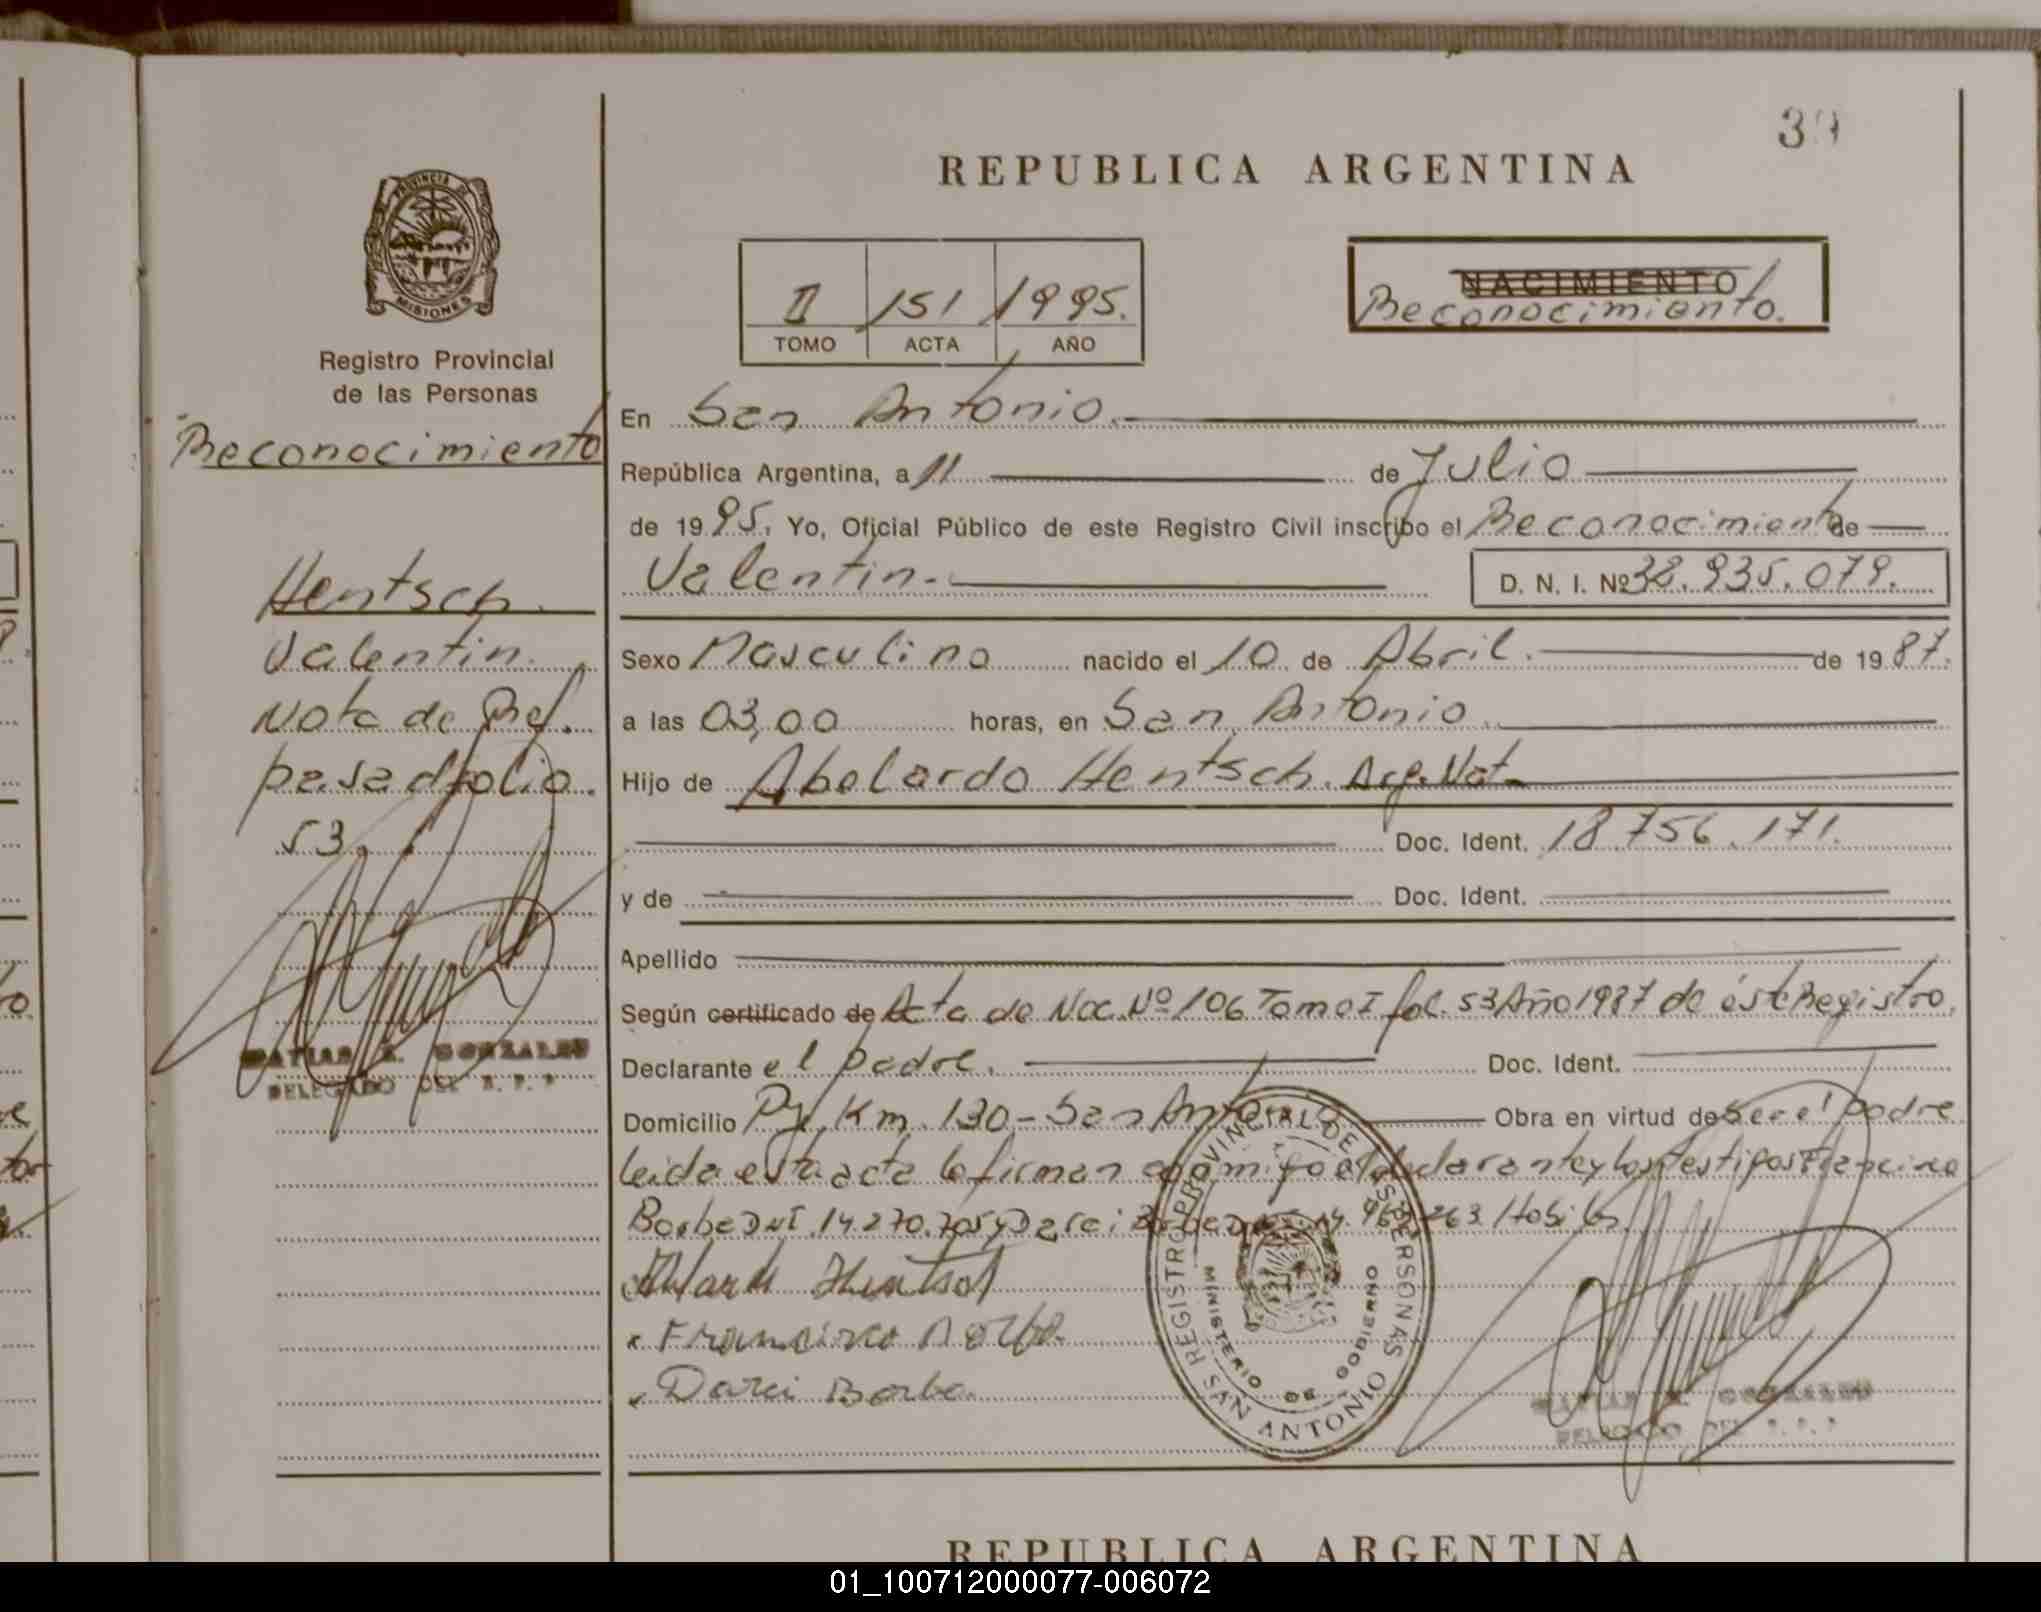 REPUBLICA ARGENTINA
PROVINCIA DE
MISIONES
Registro Provincial
de las Personas
Reconocimiento
Hentsch.
Valentin.
Nota de Ref.
pasad folio.
53.
MATIAS GONZALEZ
DELEGADO DEL R. P. P
II 151 1995.
TOMO ACTA AÑO
NACIMIENTO
Reconocimiento.
En San Antonio.
República Argentina, a 11 de Julio
de 1995. Yo, Oficial Público de este Registro Civil inscribo el Reconocimiento de
Valentin.- D. N. I. Nº 32.935.079.
Sexo Masculino nacido el 10 de Abril. de 1987.
a las 03,00 horas, en San Antonio.
Hijo de Abelardo Hentsch. Arg. Nat.
Doc. Ident. 18.756.171.
y de Doc. Ident.
Apellido
Según certificado de Acta de Nac. Nº 106 Tomo I fol. 53 Año 1987 de éste Registro.
Declarante el padre. Doc. Ident.
Domicilio Km. 130 - San Antonio Obra en virtud de ser el padre
leida esta acta la firman conmigo el declarante y los testigos Francisco
Borba DNI. 14.270.705 y Darci Borba 263. Habiles
Hentsch
x Francisco Borba.
x Darci Borba.
REGISTRO PROVINCIAL DE LAS PERSONAS
MINISTERIO DE GOBIERNO
SAN ANTONIO
DEL
REPUBLICA ARGENTINA
01_100712000077-006072